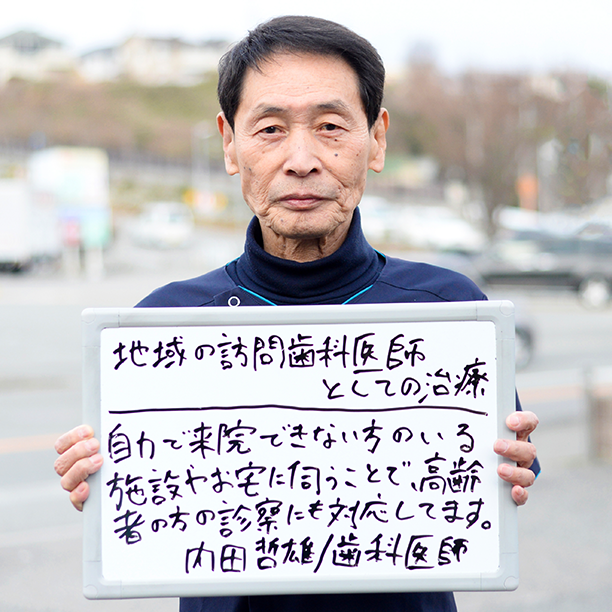 地域の訪問歯科医師
としての治療
自力で来院できない方のいる
施設やお宅に伺うことで、高齢
者の方の診察にも対応してます。
内田哲雄/歯科医師